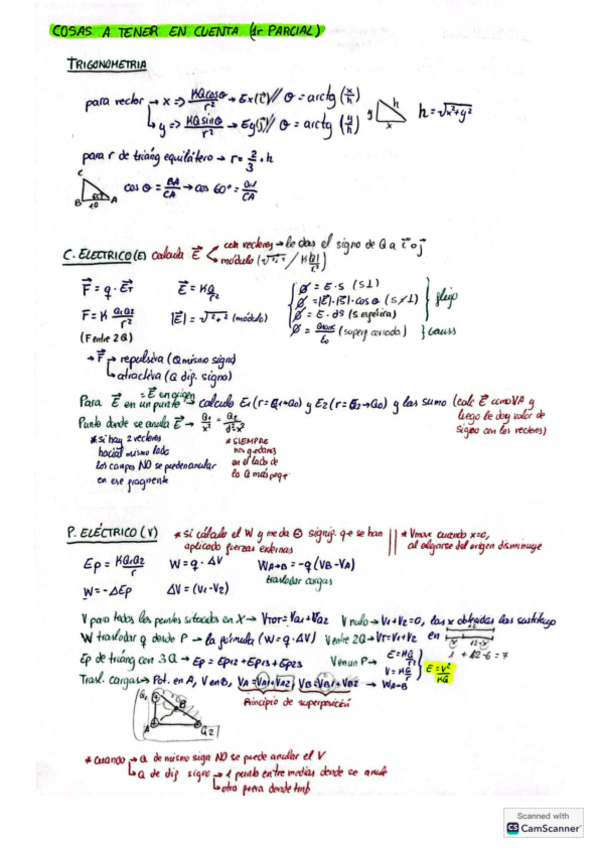 COSAS A TENER EN CUENTA (1r PARCIAL)
TRIGONOMETRIA
para vector → x => KQcosθ/r² → Ex(i)// θ = arctg (x/h)
→ y => KQsinθ/r² → Ey(j)// θ = arctg (y/h)
y h x
h = √x²+y²
para r de triáng equilátero → r = 2/3 · h
C B A
cos θ = BA/CA → cos 60° =
C. ELECTRICO (E) calcula E⃗
con vectores → le das el signo de Q a i⃗ o j⃗
módulo
F⃗ = q · E⃗T
E⃗ = KQ/r²
F = K Q1Q2/r²
|E⃗| = √ ² + ² (módulo)
(F entre 2Q)
Ø = E · S (S⊥)
Ø = |E⃗| · |S⃗| · cos θ
Ø = E · dS (S esférica)
} flujo
(superf cerrada) } Gauss
→ F⃗ → repulsiva (Q mismo signo)
→ atractiva (Q dif. signo)
= E⃗ en origen
Para E⃗ en un punto → calculo E1 y E2 y las sumo (calc E⃗ como VA y
luego le doy valor de
signo con los vectores)
Punto donde se anula E⃗ → Q1/x² = Q2/d²-x²
* si hay 2 vectores
hacia mismo lado
los campos NO se pueden anular
en ese fragmento
* SIEMPRE
nos quedamos
en el lado de
la Q más peque
P. ELÉCTRICO (V)
* si cálculo el W y me da ⊖ signif. que se han
aplicado fuerzas externas
* Vmax cuando x=0,
al alejarse del origen disminuye
Ep = KQ1Q2/r
W = q · ΔV
WA→B = -q (VB - VA)
trasladar cargas
W = -ΔEp
ΔV = (V1 - V2)
V para todos los puntos situados en X → VTOT = Va1 + Va2
V nulo → V1 + V2 = 0, las x obtenidas las sustituyo
W trasladar q desde P → la fórmula (W = q · ΔV)
V entre 2Q → VT = V1 + V2
en
1 + 12 - 6 = 7
Ep de triáng con 3Q → Ep = Ep12 + Ep13 + Ep23
V en un P →
V = KQ/r
E = V²/KQ
Trasl. cargas → Pot. en A, V en B, VA = VA1 + VA2, VB = VB1 + VB2 → WA→B
Principio de superposición
Q1 B A Q2
* cuando → Q de mismo sign NO se puede anular el V
→ Q de dif signo → 1 punto entre medias donde se anule
→ otro fuera donde tmb
Scanned with
CS CamScanner